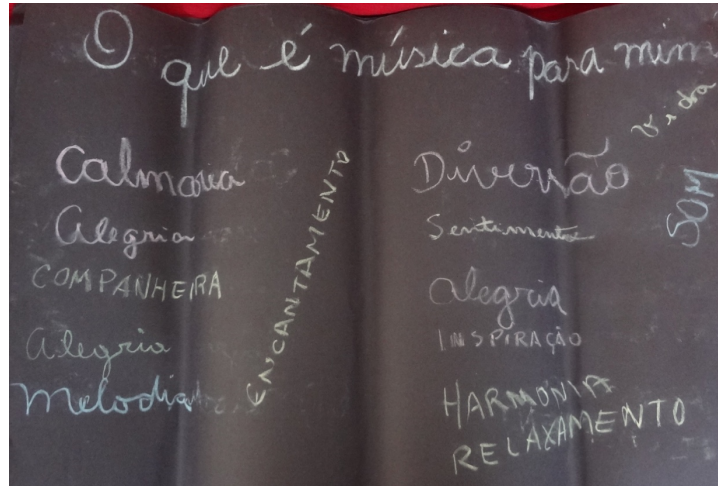 O que é música para mim
Vida
Calmaria
Alegria
COMPANHEIRA
Alegria
Melodia
ENCANTAMENTO
Diversão
Sentimento
alegria
INSPIRAÇÃO
HARMONIA
RELAXAMENTO
SOM